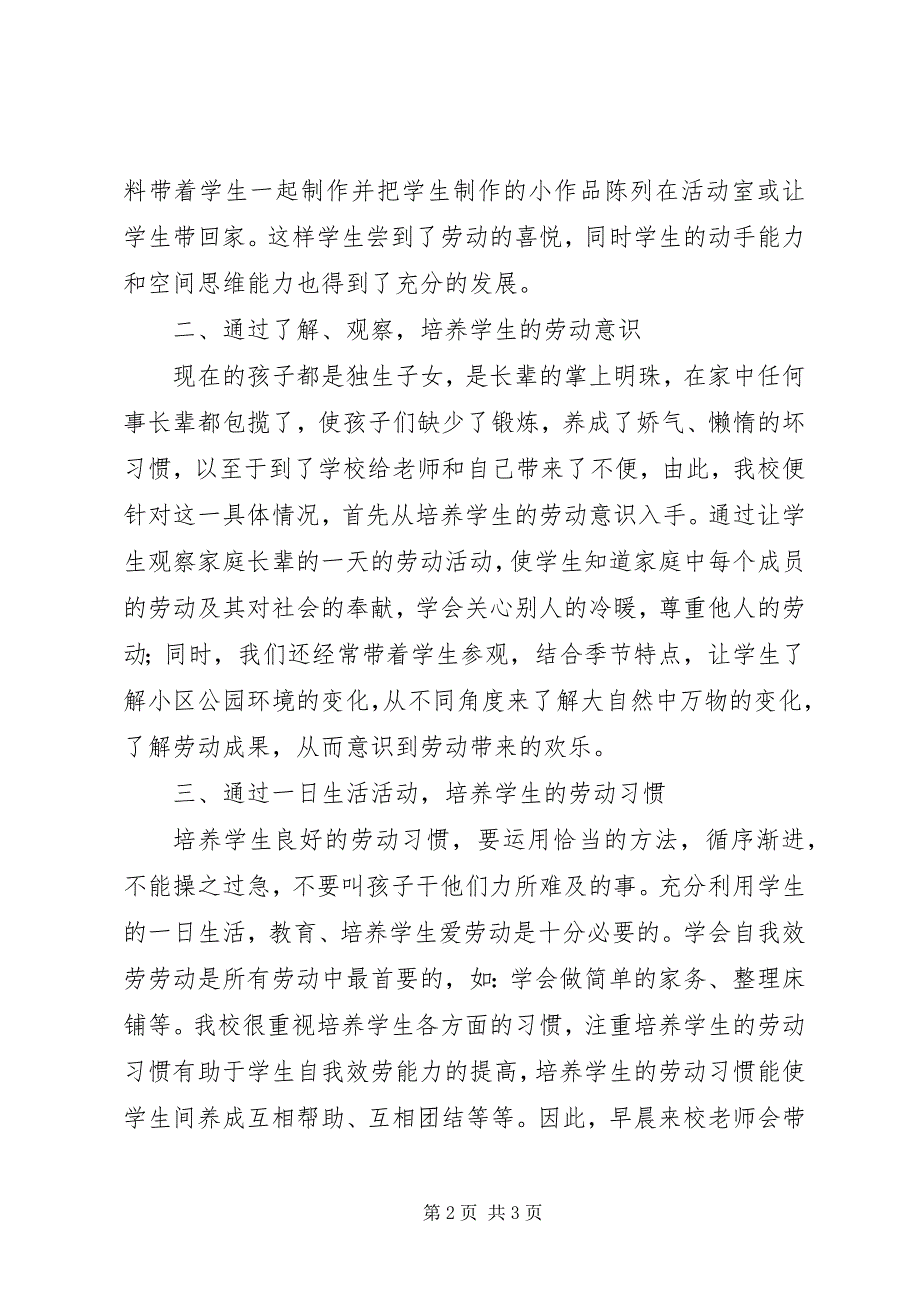 料带着学生一起制作并把学生制作的小作品陈列在活动室或让
学生带回家。这样学生尝到了劳动的喜悦，同时学生的动手能力
和空间思维能力也得到了充分的发展。
二、通过了解、观察，培养学生的劳动意识
现在的孩子都是独生子女，是长辈的掌上明珠，在家中任何
事长辈都包揽了，使孩子们缺少了锻炼，养成了娇气、懒惰的坏
习惯，以至于到了学校给老师和自己带来了不便，由此，我校便
针对这一具体情况，首先从培养学生的劳动意识入手。通过让学
生观察家庭长辈的一天的劳动活动，使学生知道家庭中每个成员
的劳动及其对社会的奉献，学会关心别人的冷暖，尊重他人的劳
动；同时，我们还经常带着学生参观，结合季节特点，让学生了
解小区公园环境的变化，从不同角度来了解大自然中万物的变化，
了解劳动成果，从而意识到劳动带来的欢乐。
三、通过一日生活活动，培养学生的劳动习惯
培养学生良好的劳动习惯，要运用恰当的方法，循序渐进，
不能操之过急，不要叫孩子干他们力所难及的事。充分利用学生
的一日生活，教育、培养学生爱劳动是十分必要的。学会自我效
劳劳动是所有劳动中最首要的，如：学会做简单的家务、整理床
铺等。我校很重视培养学生各方面的习惯，注重培养学生的劳动
习惯有助于学生自我效劳能力的提高，培养学生的劳动习惯能使
学生间养成互相帮助、互相团结等等。因此，早晨来校老师会带
第2页 共3页